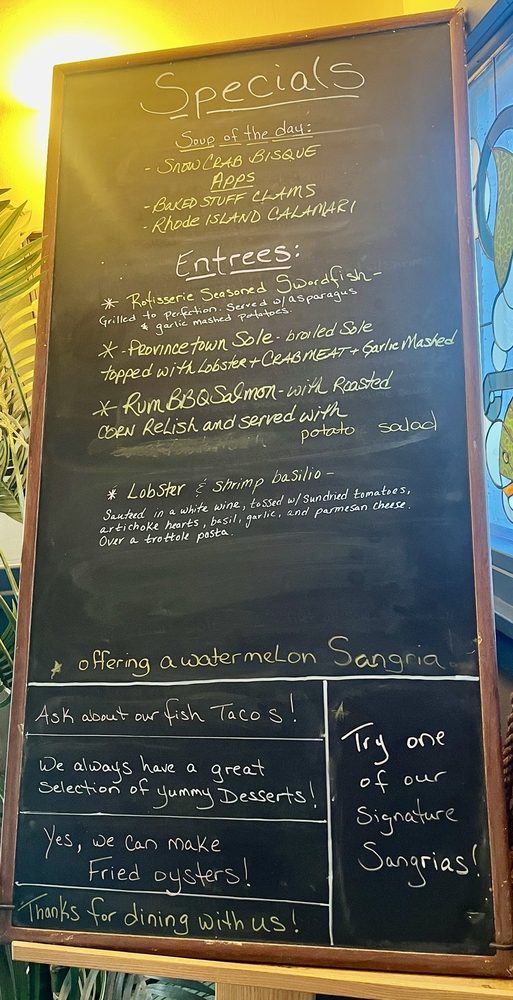 Specials
Soup of the day:
- SNOW CRAB BISQUE
Apps
- BAKED STUFF CLAMS
- Rhode ISLAND CALAMARI
Entrees:
* Rotisserie Seasoned Swordfish -
Grilled to perfection. Served w/ asparagus
& garlic mashed potatoes.
* - Provincetown Sole - broiled Sole
topped with Lobster + CRABMEAT + Garlic Mashed
* Rum BBQ Salmon - with Roasted
CORN Relish and served with
potato salad
* Lobster & shrimp basilio -
Sauteed in a white wine, tossed w/ Sundried tomatoes,
artichoke hearts, basil, garlic, and parmesan cheese.
Over a trottole pasta.
* offering a watermelon Sangria!
Ask about our fish Tacos!
We always have a great
Selection of yummy Desserts!
Yes, we can make
Fried oysters!
Thanks for dining with us!
Try one
of our
Signature
Sangrias!